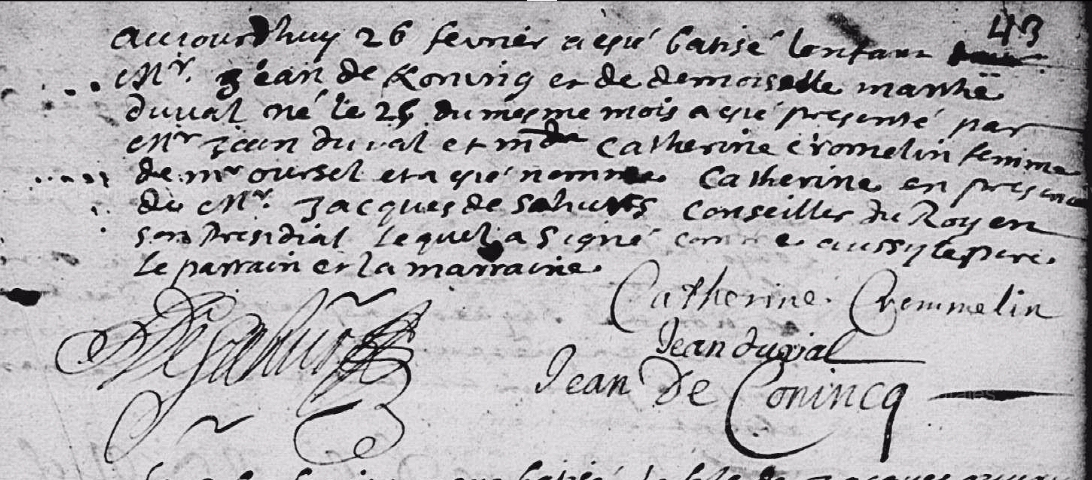 43
aujourdhuy 26 fevrier a esté batisé lenfant
Mr. Jean de Koninq et de demoiselle marthe
duval né le 25 du mesme mois a esté presenté par
Mr Jean duval et mde Catherine Cromelin femme
de mr oursel et a esté nommee Catherine en presence
de Mr. Jacques de Conseiller du Roy en
son Presidial lequel a Signé comme aussy le pere
le parrain et la marraine.
Catherine. Crommelin
Jean duval
Jean De Conincq